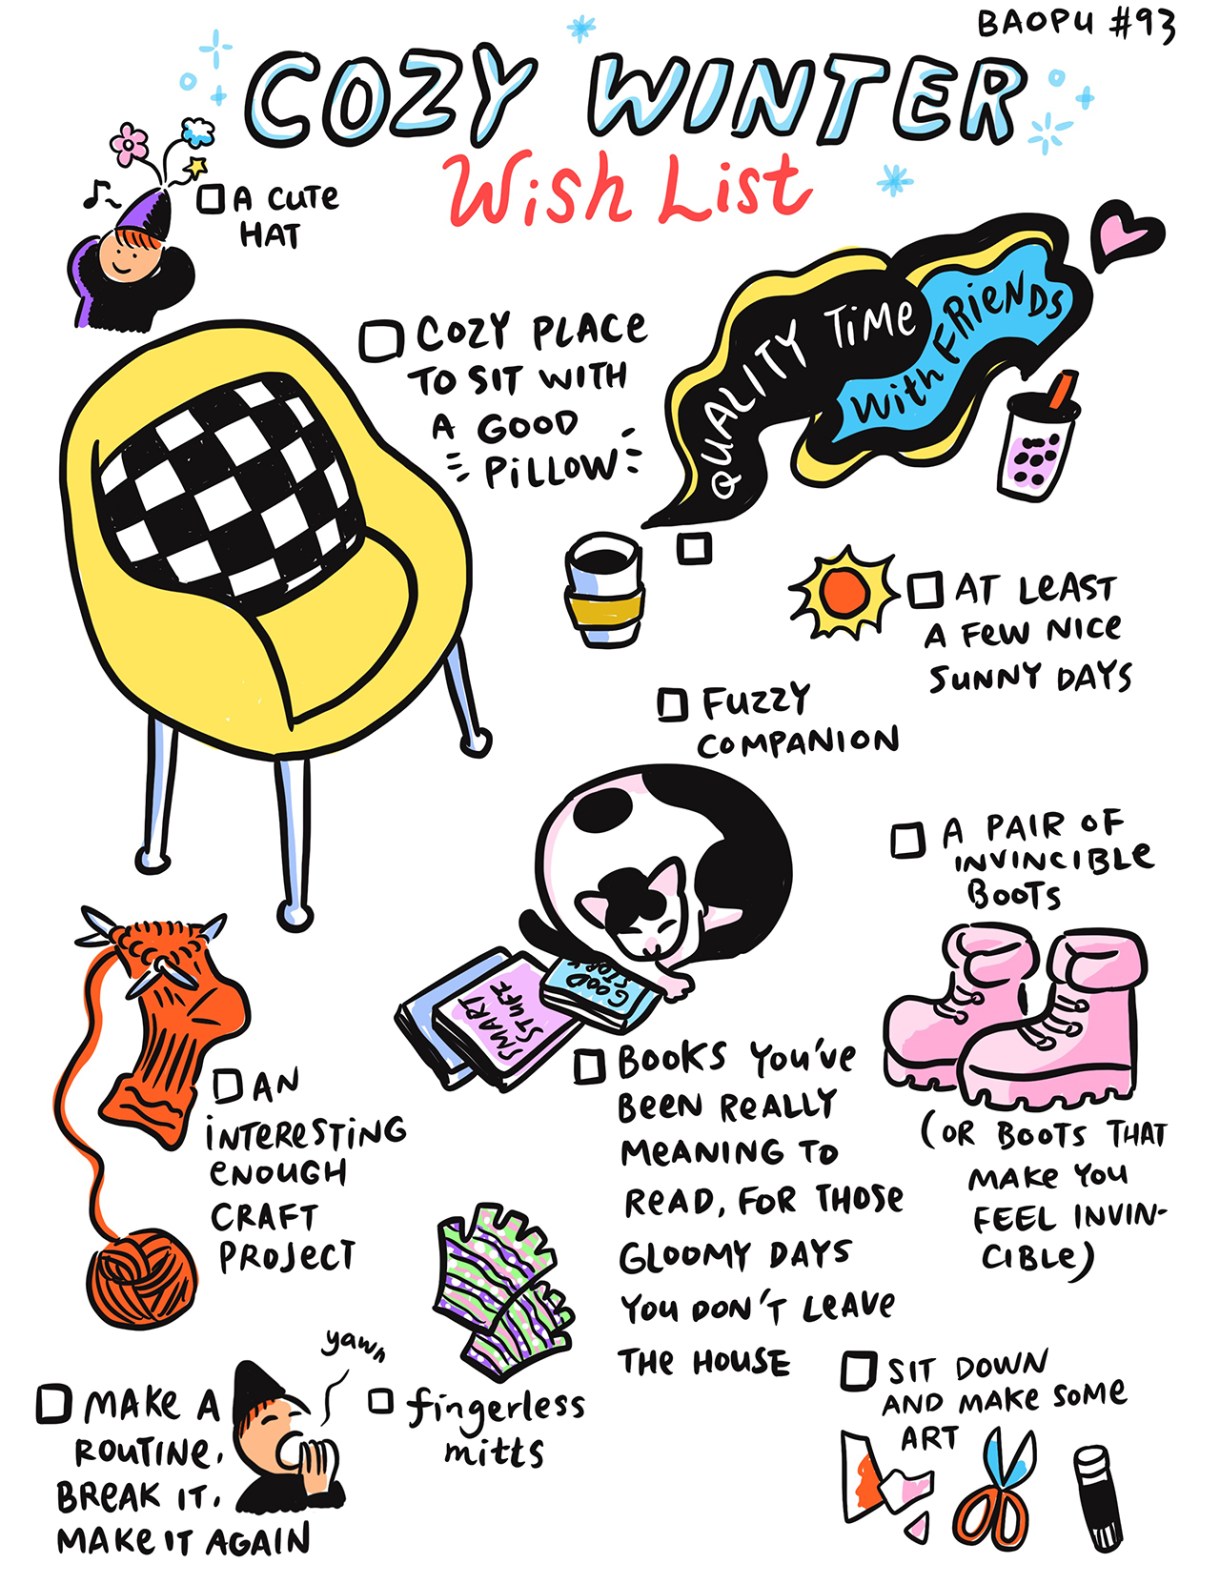 BAOPU #93
COZY WINTER
Wish List
A CUTE
HAT
COZY PLACE
TO SIT WITH
A GOOD
PILLOW
QUALITY TIME
With FRIENDS
AT LEAST
A FEW NICE
SUNNY DAYS
FUZZY
COMPANION
A PAIR OF
INVINCIBLE
BOOTS
(OR BOOTS THAT
MAKE YOU
FEEL INVIN-
CIBLE)
GOOD
STORY
SMART
STUFF
BOOKS YOU'VE
BEEN REALLY
MEANING TO
READ, FOR THOSE
GLOOMY DAYS
YOU DON'T LEAVE
THE HOUSE
AN
INTERESTING
ENOUGH
CRAFT
PROJECT
fingerless
mitts
yawn
MAKE A
ROUTINE,
BREAK IT,
MAKE IT AGAIN
SIT DOWN
AND MAKE SOME
ART